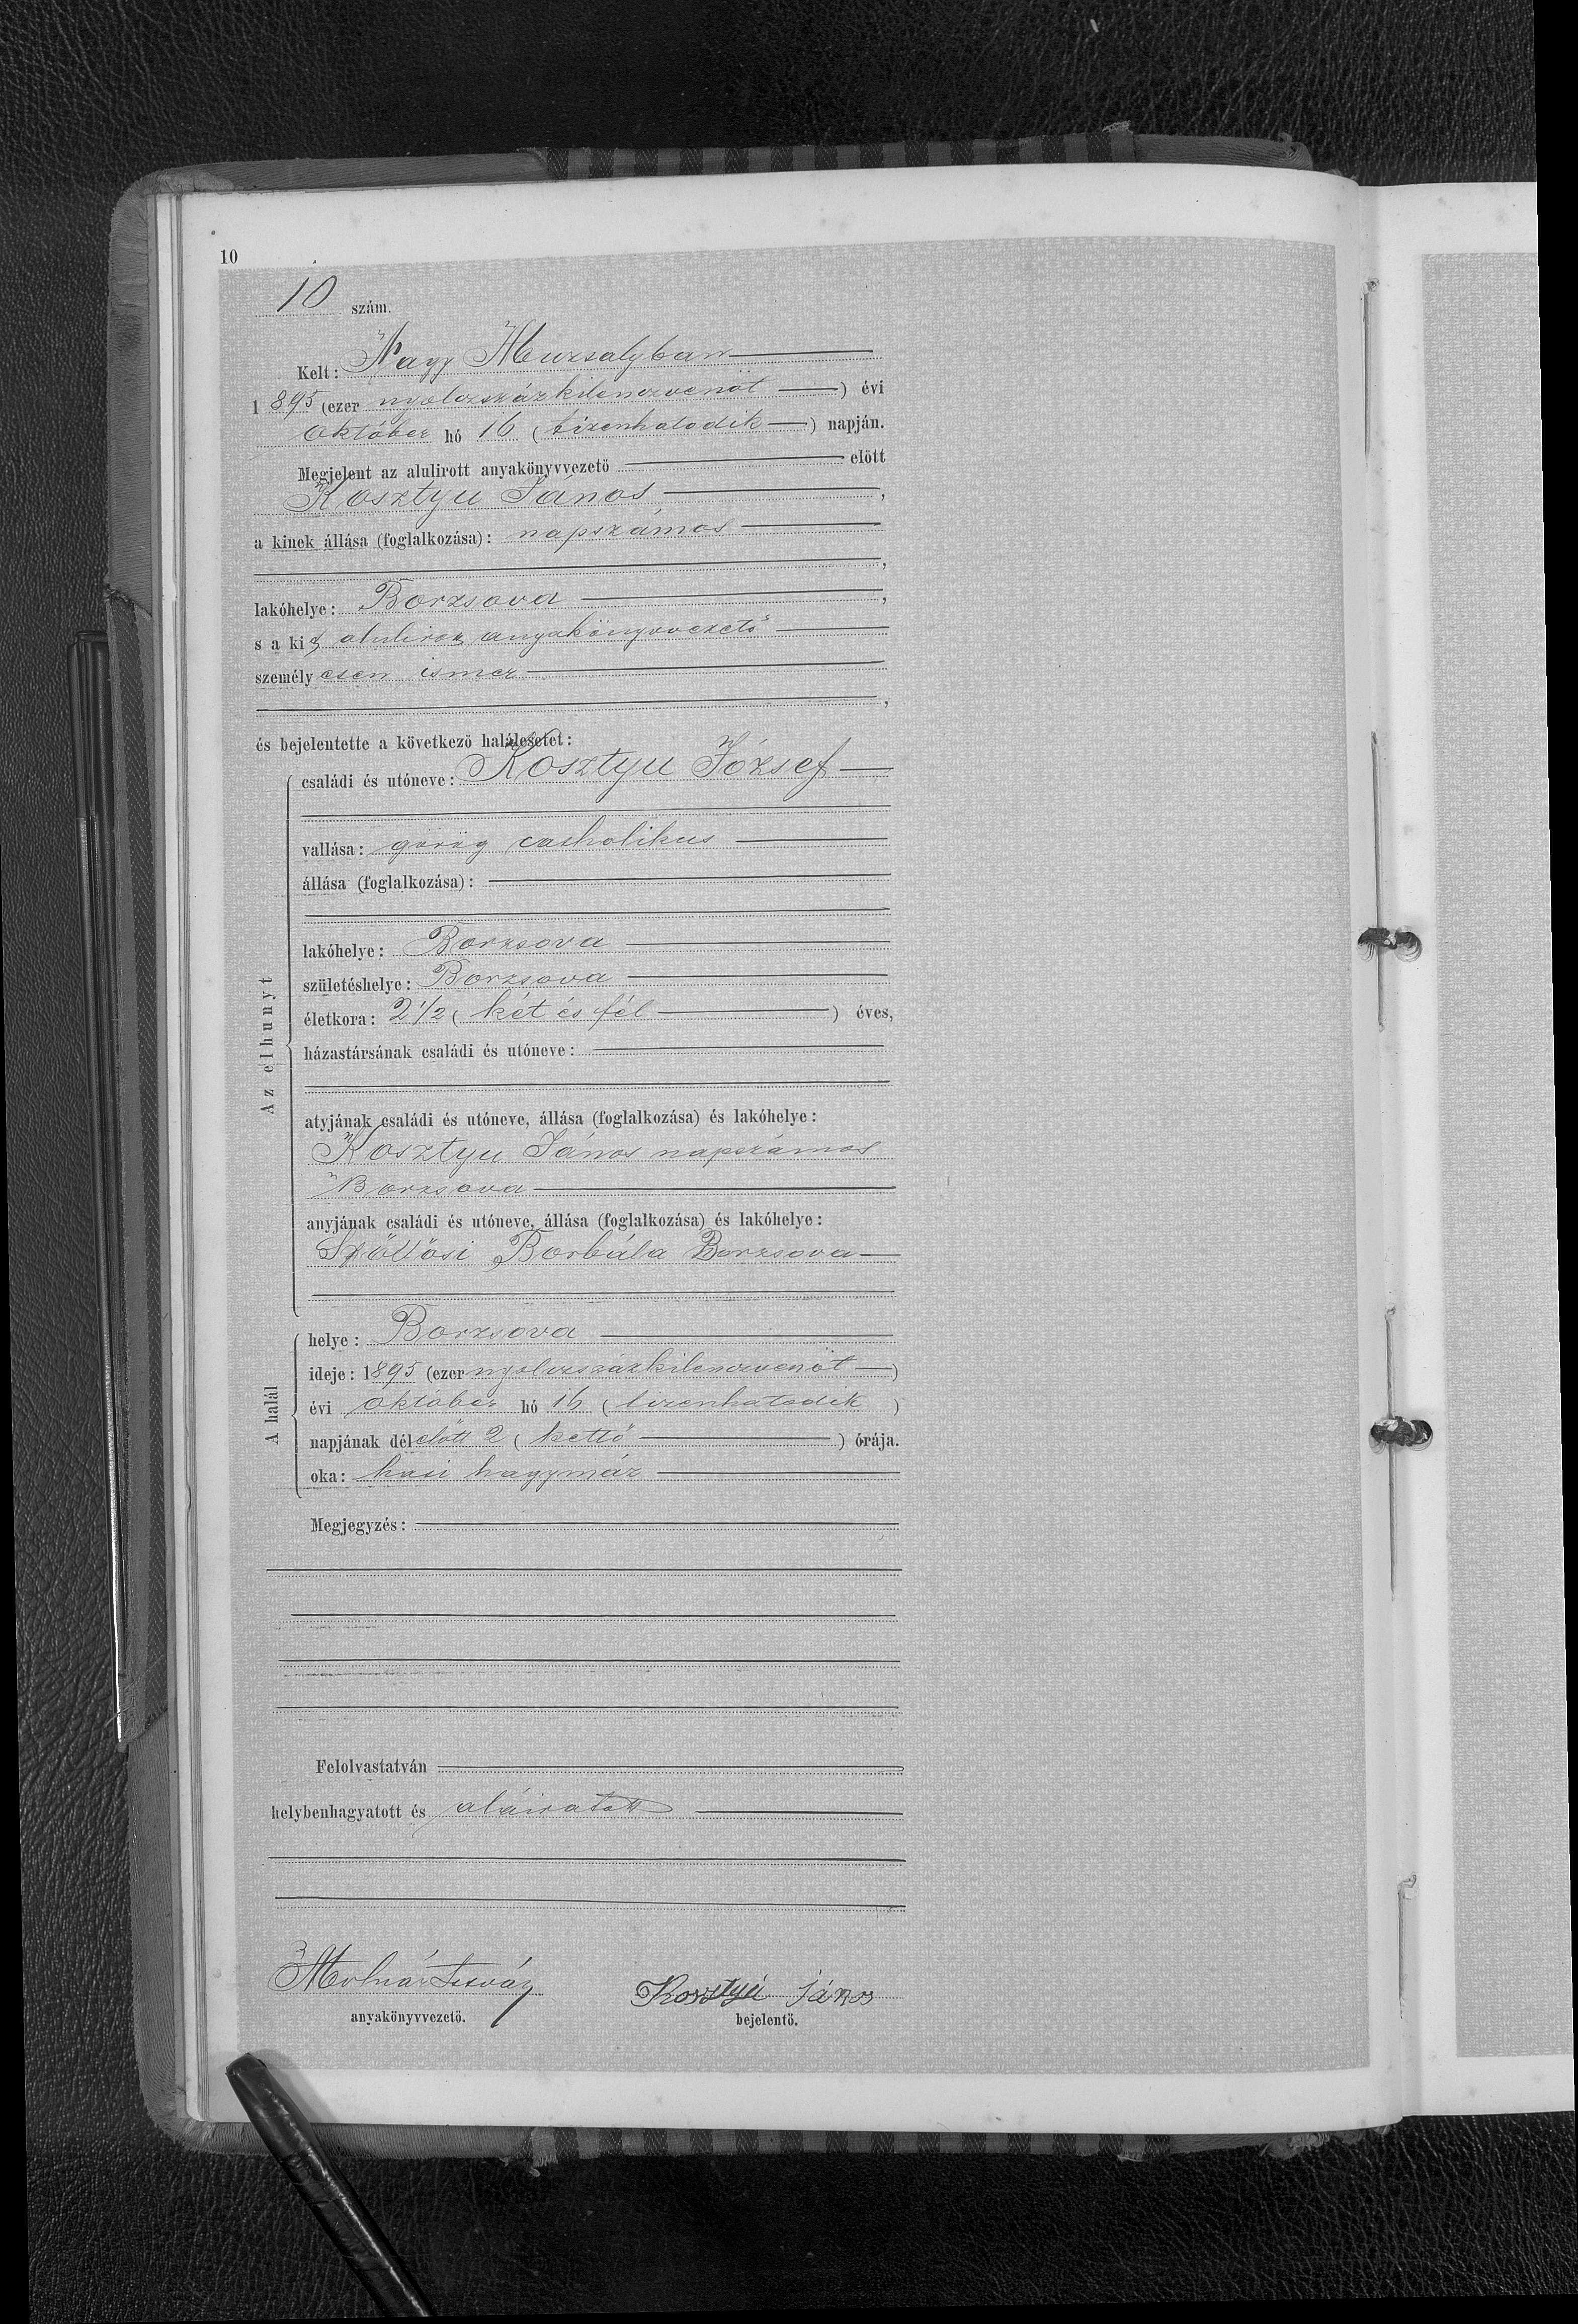 10
10 szám.
Kelt: Nagy Muzsalyban
1895 (ezer nyolczszázkilenczvenöt) évi
október hó 16 (tizenhatodik) napján.
Megjelent az alulirott anyakönyvvezető előtt
Kosztyu János,
a kinek állása (foglalkozása): napszámos
,
lakóhelye: Borzsova,
s a kit alulirott anyakönyvvezető
személyesen ismer
,
és bejelentette a következő halálesetet:
Az elhunyt
családi és utóneve: Kosztyu József
vallása: görög catholikus
állása (foglalkozása):
lakóhelye: Borzsova
születéshelye: Borzsova
életkora: 2 1/2 (két és fél) éves,
házastársának családi és utóneve:
atyjának családi és utóneve, állása (foglalkozása) és lakóhelye:
Kosztyu János napszámos
Borzsova
anyjának családi és utóneve, állása (foglalkozása) és lakóhelye:
Szöllösi Borbála Borzsova
A halál
helye: Borzsova
ideje: 1895 (ezer nyolczszázkilenczvenöt)
évi október hó 16 (tizenhatodik)
napjának délelőtt 2 (kettő) órája.
oka: hasi hagymáz
Megjegyzés:
Felolvastatván
helybenhagyatott és aláiratott
Molnár István Kosztyú János
anyakönyvvezető. bejelentő.